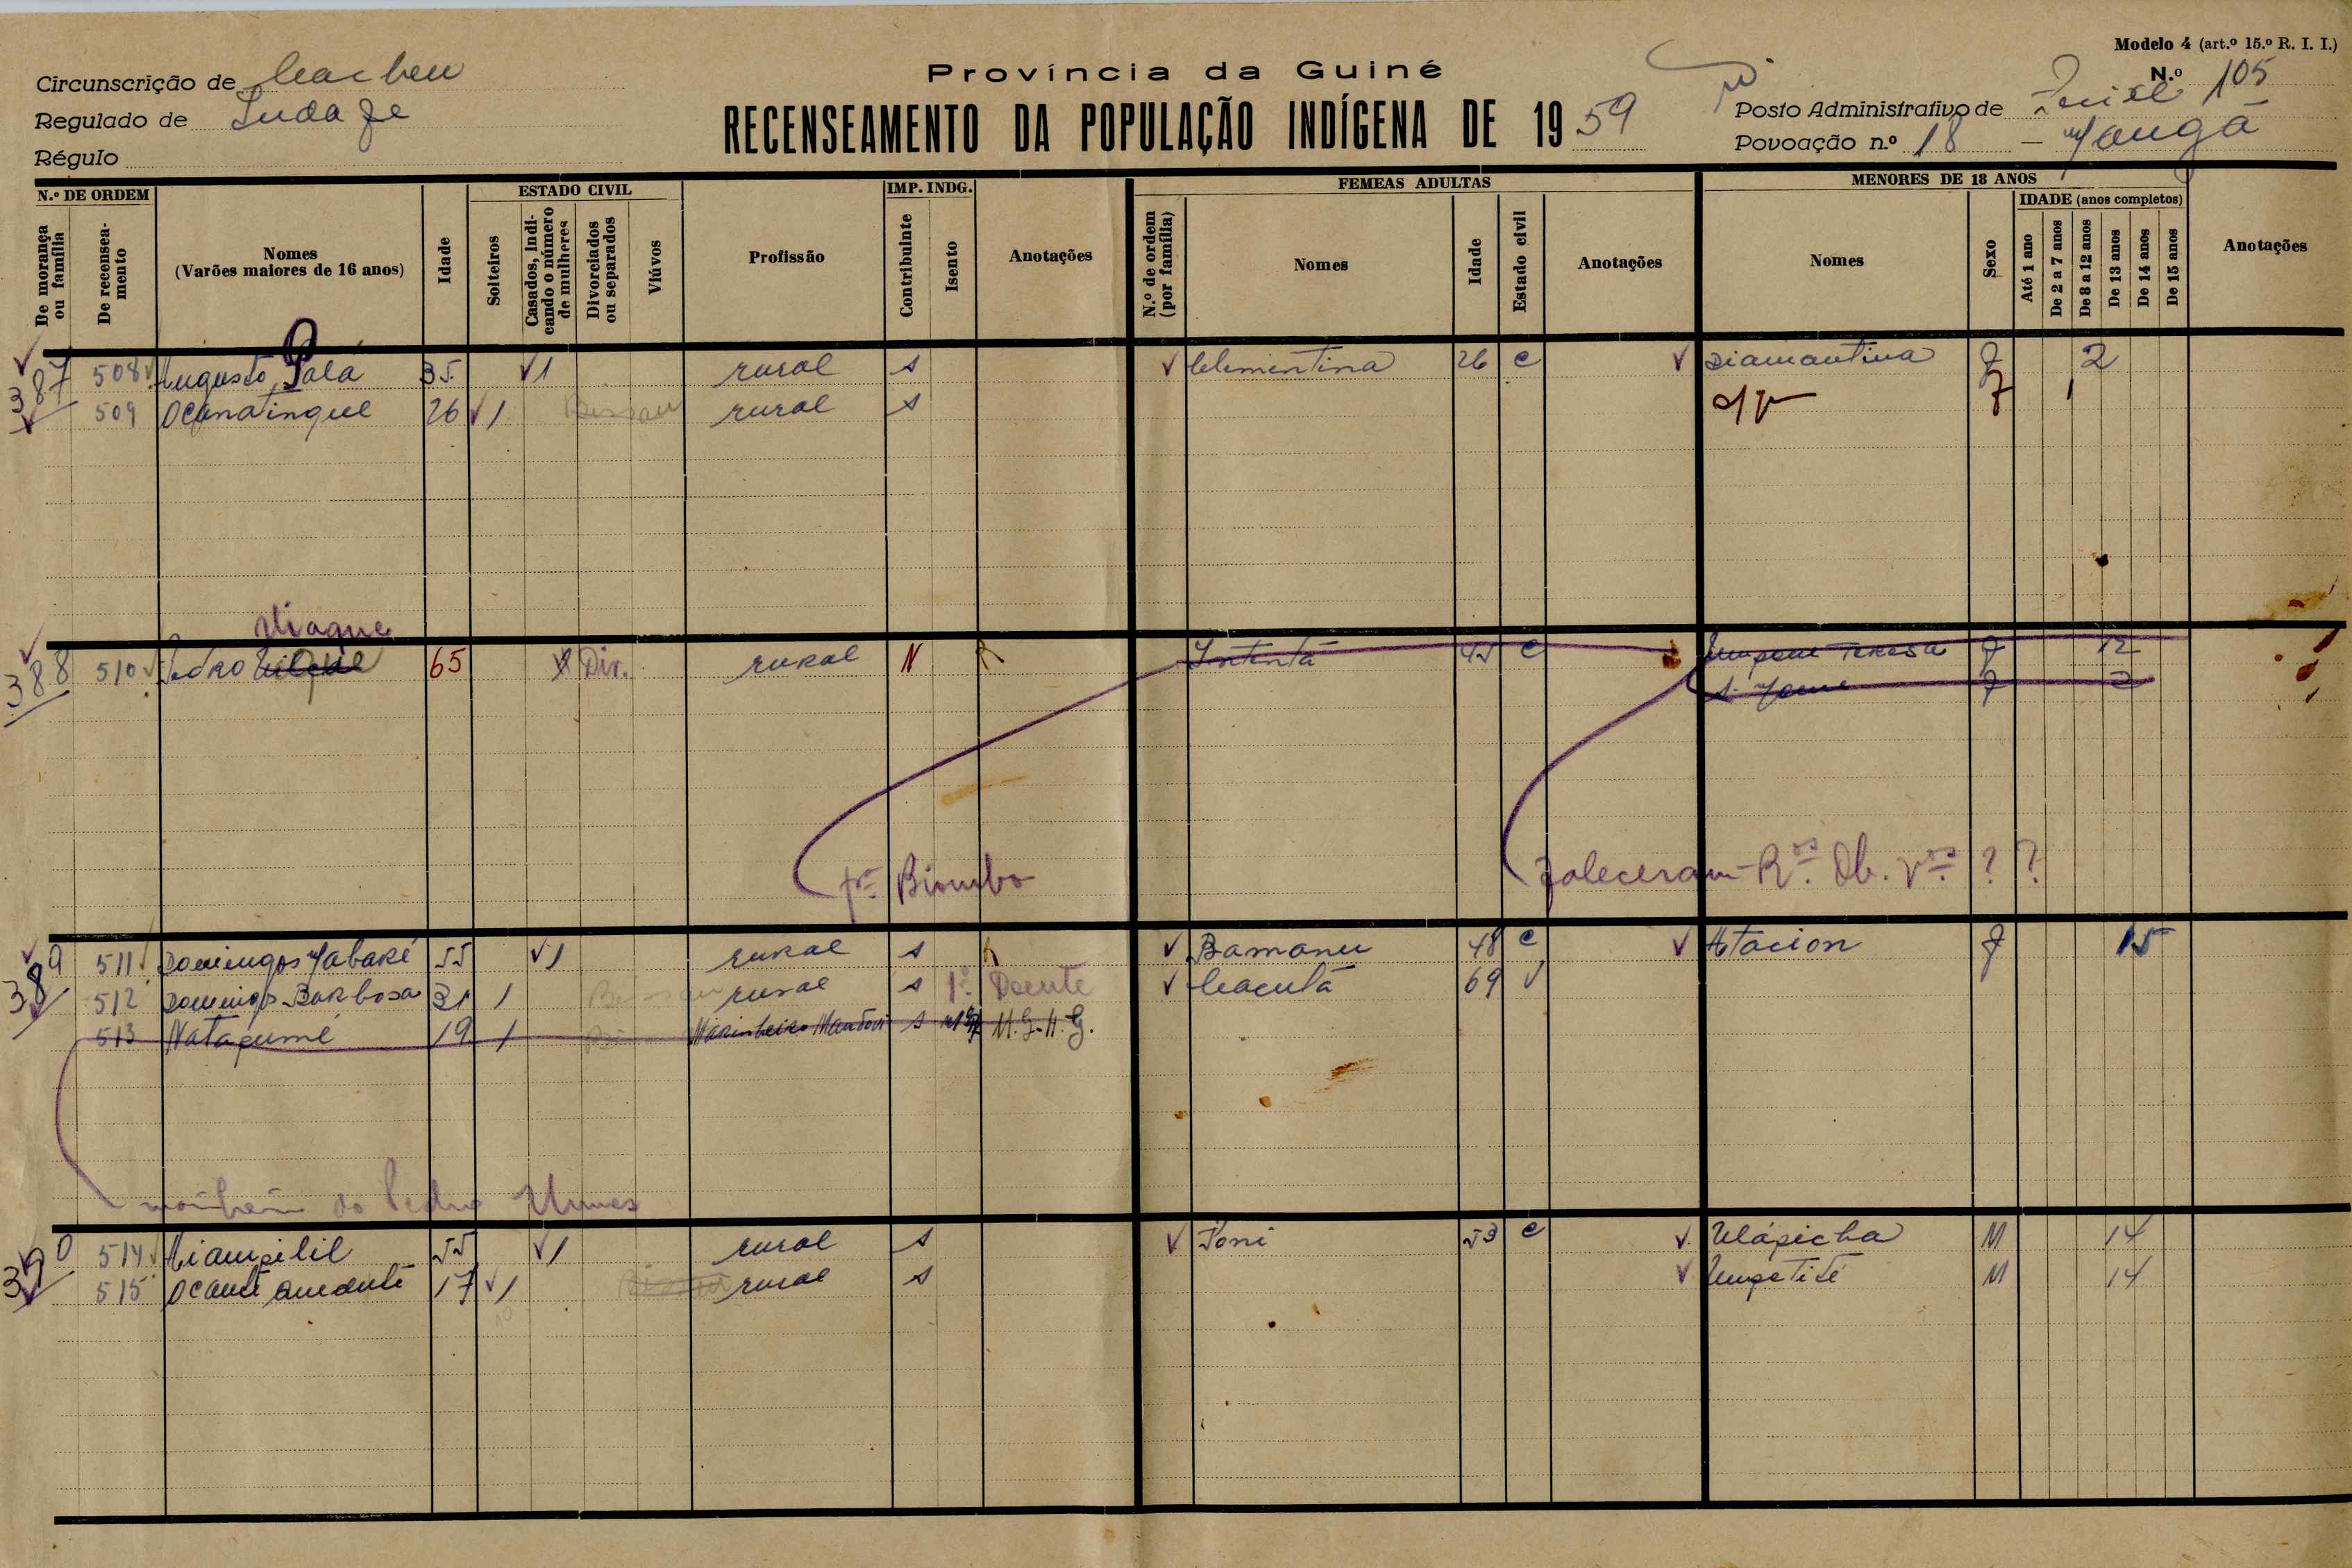 Modelo 4 (art.º 15.º R. I. I.)
Província da Guiné
N.º 105
Circunscrição de Cacheu
Regulado de
Régulo
RECENSEAMENTO DA POPULAÇÃO INDÍGENA DE 1959
Posto Administrativo de
Povoação n.º 18 —
N.º DE ORDEM
De morança ou família
De recenseamento
Nomes (Varões maiores de 16 anos)
Idade
ESTADO CIVIL
Solteiros
Casados, indicando o número de mulheres
Divorciados ou separados
Viúvos
Profissão
IMP. INDG.
Contribuinte
Isento
Anotações
FEMEAS ADULTAS
N.º de ordem (por família)
Nomes
Idade
Estado civil
Anotações
MENORES DE 18 ANOS
Nomes
Sexo
IDADE (anos completos)
Até 1 ano
De 2 a 7 anos
De 8 a 12 anos
De 13 anos
De 14 anos
De 15 anos
Anotações
387 508 Augusto Palá 35 1 rural s Clementina 26 c Diamantina f 2
509 Ocanatinque 26 1 Bissau rural s f 1
Viaque
388 510 Pedro 65 Div. rural N Intentá 45 c Teresa f 12
f 2
p.ª Biombo
Faleceram - R.os Ob. V.os ? ?
389 511 Domingos 55 1 rural s Bamanu 48 c Atacion f 15
512 Domingos Barbosa 31 1 Bissau rural s Doente Cacutá 69 V
513 Natapumé 19 1 Marinheiro s M.G.H.G.
do Pedro Nunes
390 514 55 1 rural s Toni 53 c Ulápicha M 14
515 17 1 rural s M 14